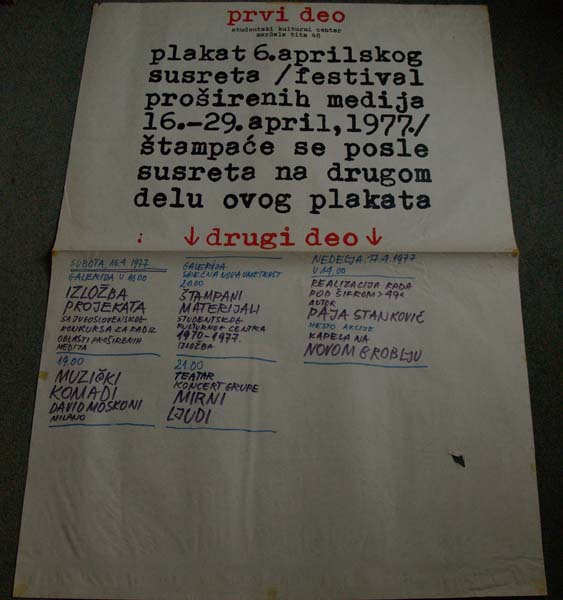 prvi deo
studentski kulturni centar
maršala tita 48
plakat 6.aprilskog
susreta /festival
proširenih medija
16.-29.april,1977./
štampaće se posle
susreta na drugom
delu ovog plakata
: ↓drugi deo↓
SUBOTA, 16.4 1977
GALERIJA U 18.00
IZLOŽBA
PROJEKATA
SA JUGOSLOVENSKOG
KONKURSA ZA RAD IZ
OBLASTI PROŠIRENIH
MEDIJA
19.00
MUZIČKI
KOMADI
DAVID MOSKONI
MILANO
GALERIJA
SREĆNA NOVA UMETNOST
20.00
ŠTAMPANI
MATERIJALI
STUDENTSKOG
KULTURNOG CENTRA
1970-1977.
IZLOŽBA
21.00
TEATAR
KONCERT GRUPE
MIRNI
LJUDI
NEDELJA, 17.4.1977
U 14.00
REALIZACIJA RADA
POD ŠIFROM >49<
AUTOR
PAJA STANKOVIĆ
MESTO AKCIJE
KAPELA NA
NOVOM GROBLJU